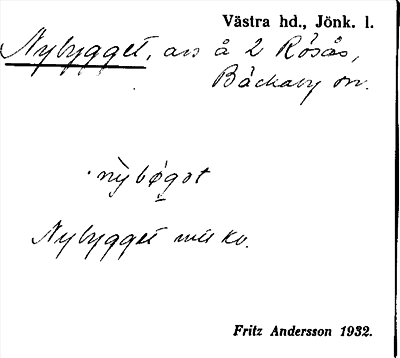 Västra hd., Jönk. l.
Nybygget, avs å 2 Rösås,
Bäckaby sn.
nybøgət
Nybygget
Fritz Andersson 1932.